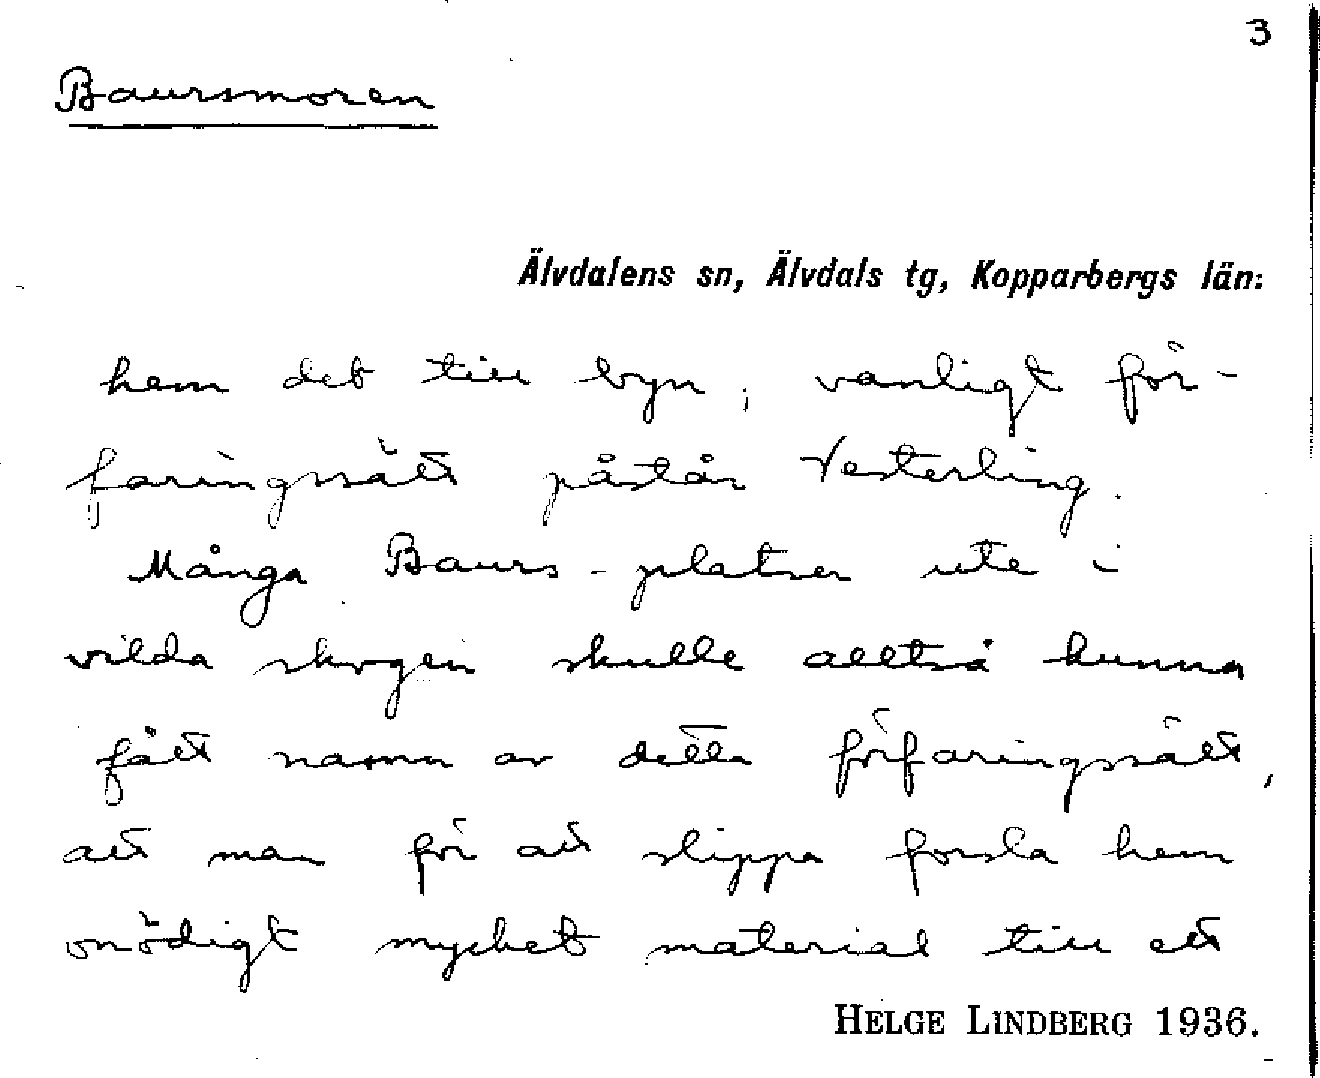 3
Baursmoren
Älvdalens sn, Älvdals tg, Kopparbergs län:
hem det till byn; vanligt för-
faringssätt påstår Vesterling.
Många Baurs-platser ute i
vilda skogen skulle alltså kunna
fått namn av detta förfaringssätt,
att man för att slippa forsla hem
onödigt mycket material till ett
HELGE LINDBERG 1936.